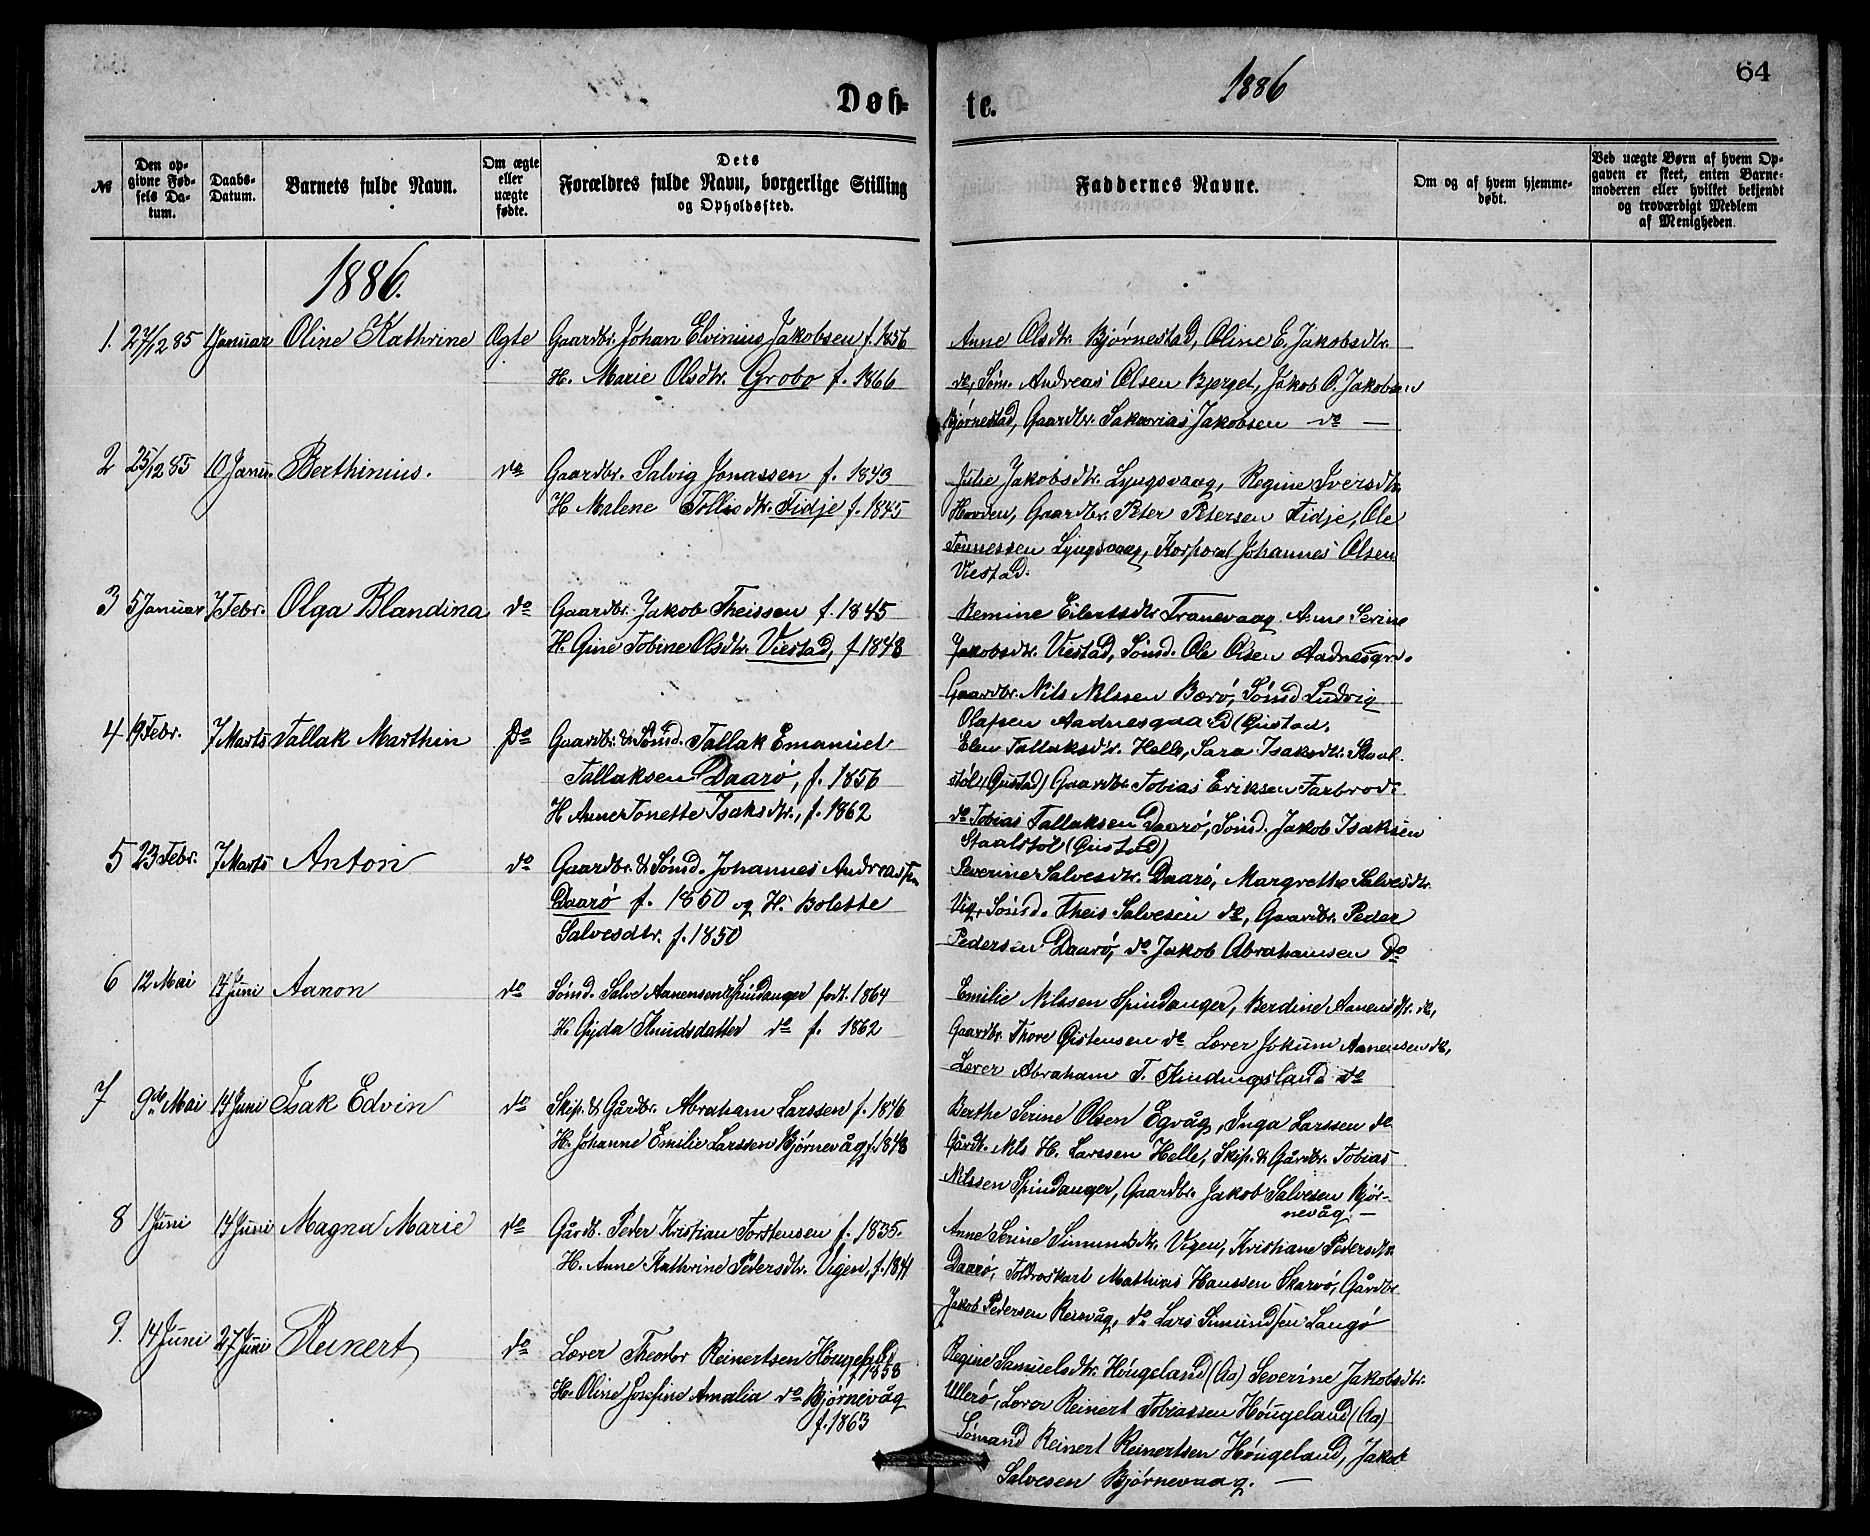 Døb-
te.
1886
64
№
Den op-
givne Fød-
sels Da-
tum.
Daabs-
Datum.
Barnets fulde Navn.
Om ægte
eller
uægte
fødte.
Dets
Forældres fulde Navn, borgerlige Stilling
og Opholdssted.
Faddernes Navne.
Om og af hvem hjemme-
døbt.
Ved uægte Børn af hvem Op-
gaven er skeet, enten Barne-
moderen eller hvilket bekjendt
og troværdigt Medlem
af Menigheden.
1886.
1. 27/12 85 1 Januar Oline Kathrine Ægte Gaardbr. Johan Elvinius Jakobsen f. 1856
H. Marie Olsdtr. Grobo f. 1866
Anne Olsdtr. Bjørnestad, Oline E. Jakobsdtr.
do, Søm. Andreas Olsen Bjerget, Jakob O. Jakobsen
Bjørnestad, Gaardbr. Sakarias Jakobsen do —
2 25/12 85 10 Janu. Berthinius. do Gaardbr. Salvig Jonassen f. 1843
H. Malene Tollisdtr. Tidje f. 1845
Julie Jakobsdtr. Lyngsvaag, Regine Iversdtr.
Hovden, Gaardbr. Peter Petersen Tidje, Ole
Tønnessen Lyngsvaag, Korporal Johannes Olsen
Viestad.
3 5 Januar 7 Febr. Olga Blandina do Gaardbr. Jakob Theissen f. 1845
H. Gine Tobine Olsdtr. Viestad, f 1848
Remine Eilertsdtr Tranevaag Anne Serine
Jakobsdtr. Viestad, Sømd. Ole Olsen Aadnesgr.
Gaardbr. Nils Nilssen Bærø, Sømd Ludvig
Olafsen Aadnesgaard (Gustad.
4 19 Febr. 7 Marts Tallak Marthin Do Gaardbr. & Sømd. Tallak Emanuel
Tallaksen Daarø, f. 1856
H Anne Tonette Isaksdtr., f. 1862
Elen Tallaksdtr. Helle, Sara Isaksdtr. Staal-
støl (Gustad) Gaardbr. Tobias Eriksen Farbrod.
do Tobias Tallaksen Daarø, Sømd. Jakob Isaksen
Staalstøl (Gustad)
5 23 Febr. 7 Marts Anton do Gaardbr. & Sømd. Johannes Andreassen
Daarø f. 1850 og H. Bolette
Salvesdtr. f. 1850
Severine Salvesdtr. Daarø, Margrethe Salvesdtr.
Vig, Sømd. Theis Salvesen do, Gaardbr. Peder
Pedersen Daarø, do Jakob Abrahamsen Do
6 12 Mai 14 Juni Aanon do Sømd. Salve Aanensen Spindanger født. 1864
H. Gyda Knudsdatter do f. 1862
Emilie Nilssen Spindanger, Berdine Aanensdtr. do,
Gaardbr. Thore Gistensen do Lærer Jokum Aanensen do,
Lærer Abraham T. Kindingsland do
7 9de Mai 14 Juni Isak Edvin do Skip. & Gårdbr. Abraham Larssen f. 1846
H. Johanne Emilie Larssen Bjørnevåg f. 1848
Berthe Serine Olsen Egvåg, Inga Larssen do
Gårdb. Nils H. Larssen Helle, Skip. & Gårdbr. Tobias
Nilssen Spindanger, Gaardbr. Jakob Salvesen Bjør-
nevåg. —
8 1 Juni 14 Juni Magna Marie do Gårdb. Peder Kristian Torstensen f. 1835.
H. Anne Kathrine Pedersdtr. Vigen, f. 1841
Anne Serine Simundsdtr. Vigen, Kristiane Pedersdtr
Daarø, Toldroskarl Mathias Hanssen Skarvø, Gårdbr
Jakob Pedersen Rersvåg, do Lars Simundsen Langø
9. 14 Juni 27 Juni Reinert do Lærer Theodor Reinertsen Høugeland
f 1858
H. Oline Josefine Amalia do Bjørnevåg
f. 1863
Regine Samuelsdtr. Høugeland (Aa) Severine Jakobsdtr.
Ullerø, Lærer Reinert Tobiassen Høugeland (Aa)
Sømand Reinert Reinertsen Høugeland, Jakob
Salvesen Bjørnevaag. —